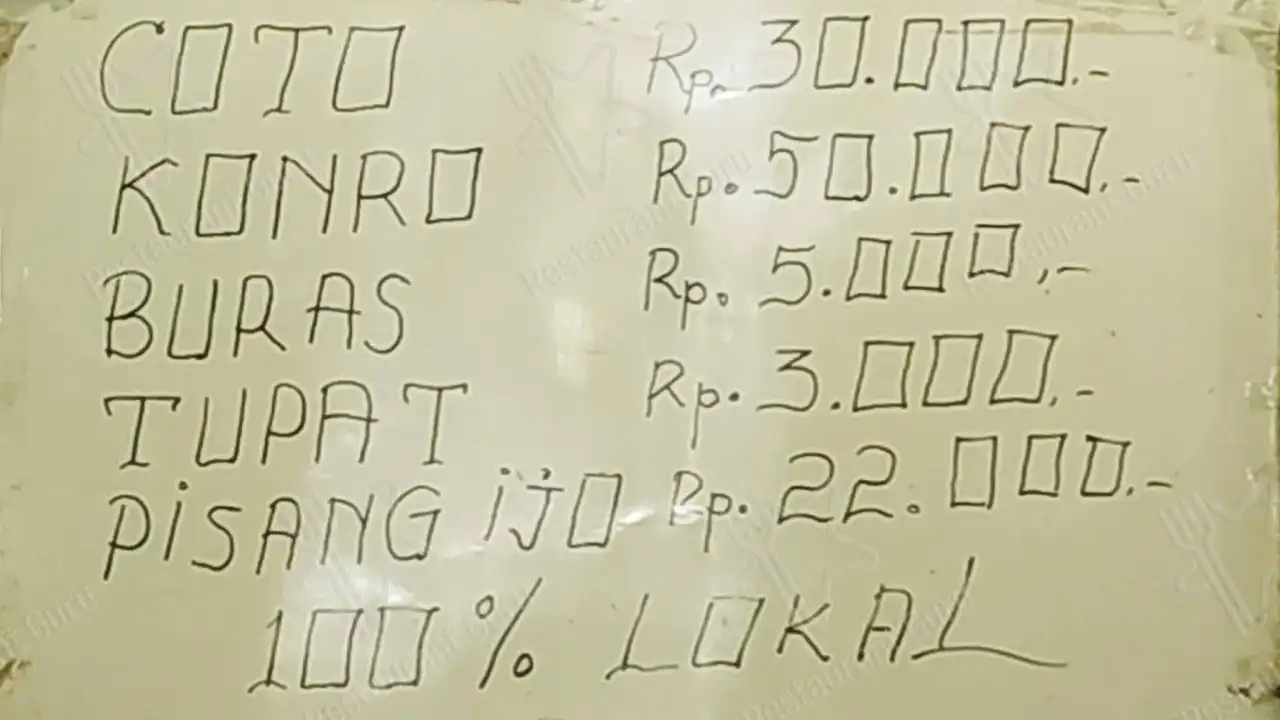 COTO Rp. 30.000.-
KONRO Rp. 50.000.-
BURAS Rp. 5.000,-
TUPAT Rp. 3.000.-
PiSANG ijO Rp. 22.000.-
100% LOKAL
Restaurant Guru